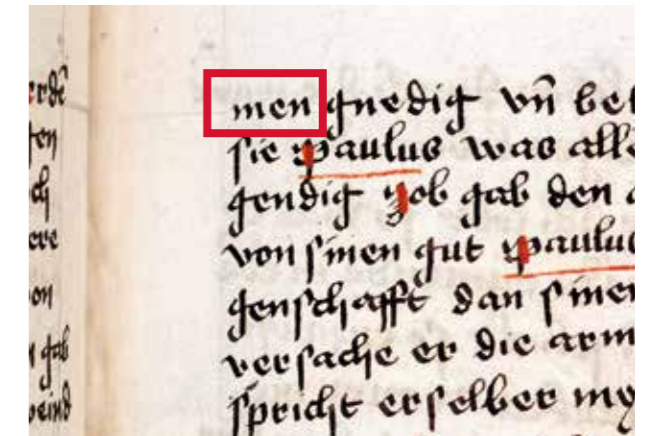 erdē
ten
ch
ere
on
gab
weind
men gnedig vn̄ bet
sie Paulus was alle
gendig Job gab den a
von sinen gut Paulus
genschafft dan siner
versache er die arm
spricht erselber my